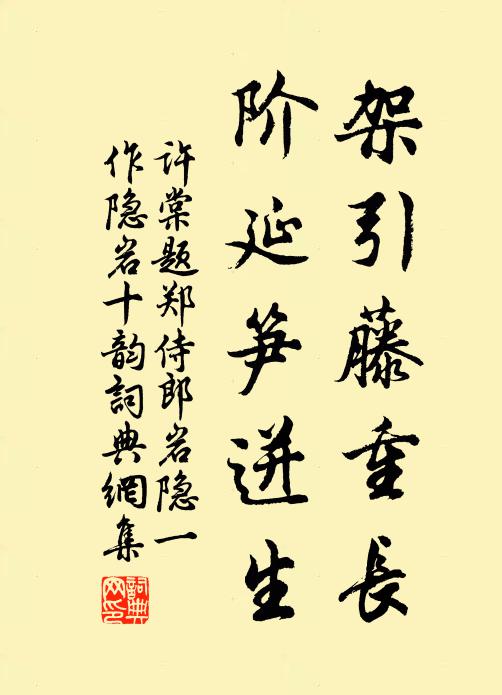 架引藤重长
阶延笋迸生
许棠题郑侍郎岩隐一
作隐岩十韵词典网集